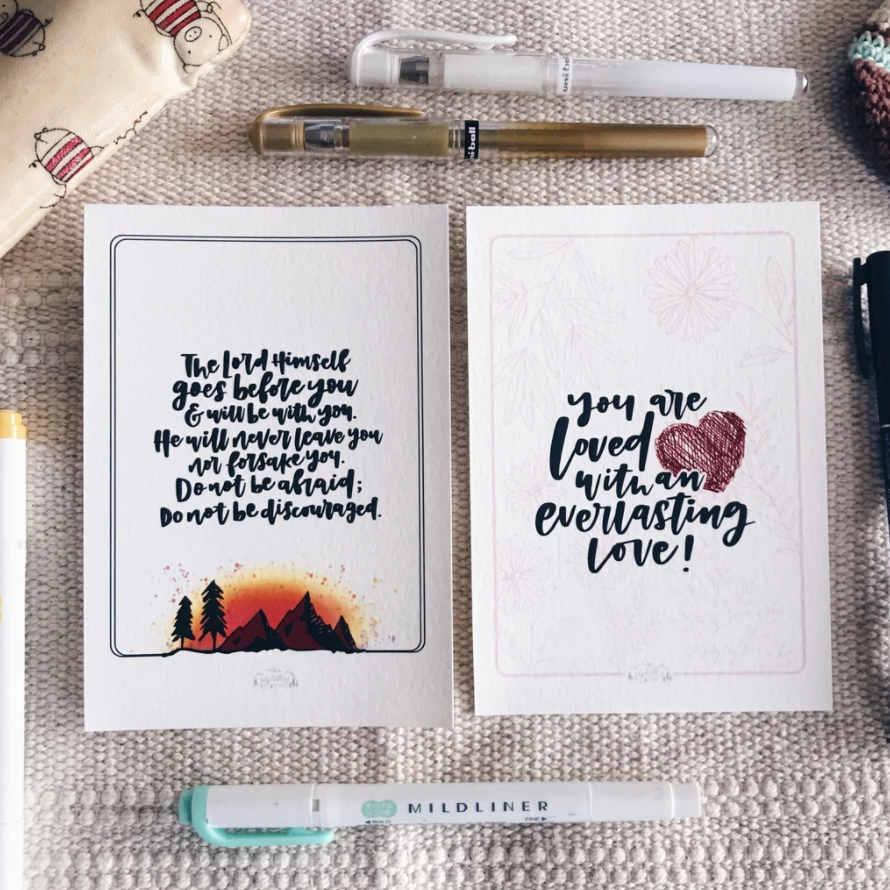 uni-ball
uni-ball
The Lord Himself
goes before you
& will be with you.
He will never leave you
nor forsake you.
Do not be afraid;
Do not be discouraged.
you are
loved
with an
everlasting
love!
MILDLINER
◄BOLD FINE►